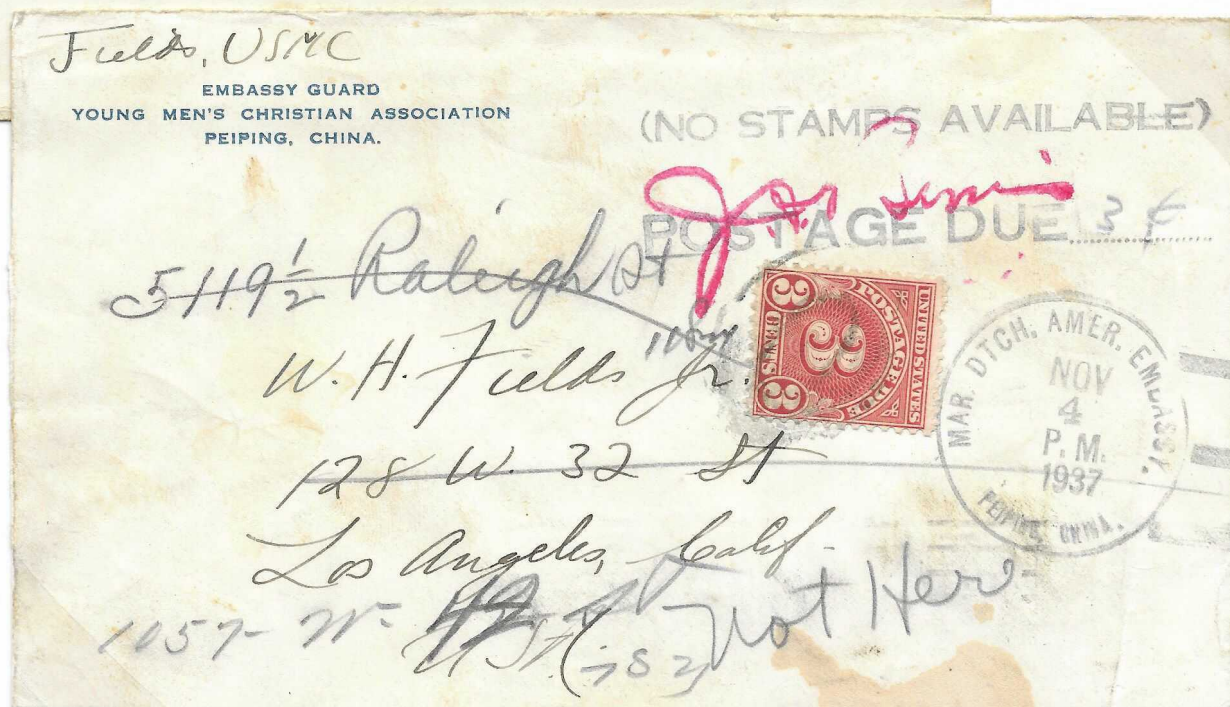 Fields, USMC
EMBASSY GUARD
YOUNG MEN'S CHRISTIAN ASSOCIATION
PEIPING, CHINA.
(NO STAMPS AVAILABLE)
POSTAGE DUE 3¢
5119½ Raleigh St
W. H. Fields Jr.
128 W. 32 St
Los Angeles, Calif.
1157 W. 42
Not Here
UNITED STATES
POSTAGE DUE
3 CENTS 3
3
MAR. DTCH. AMER. EMBASSY,
NOV
4
P. M.
1937
PEIPING, CHINA.